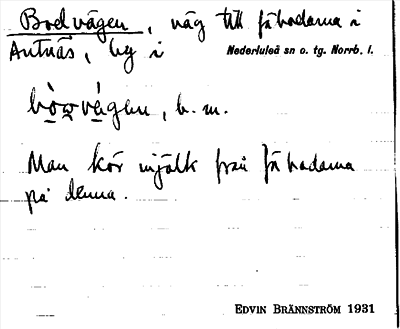 Bodvägen, väg till fäbodarna i
Antnäs, by i Nederluleå sn o. tg. Norrb. l.
vägen, b. m.
Man kör mjölk från fäbodarna
på denna.
EDVIN BRÄNNSTRÖM 1931